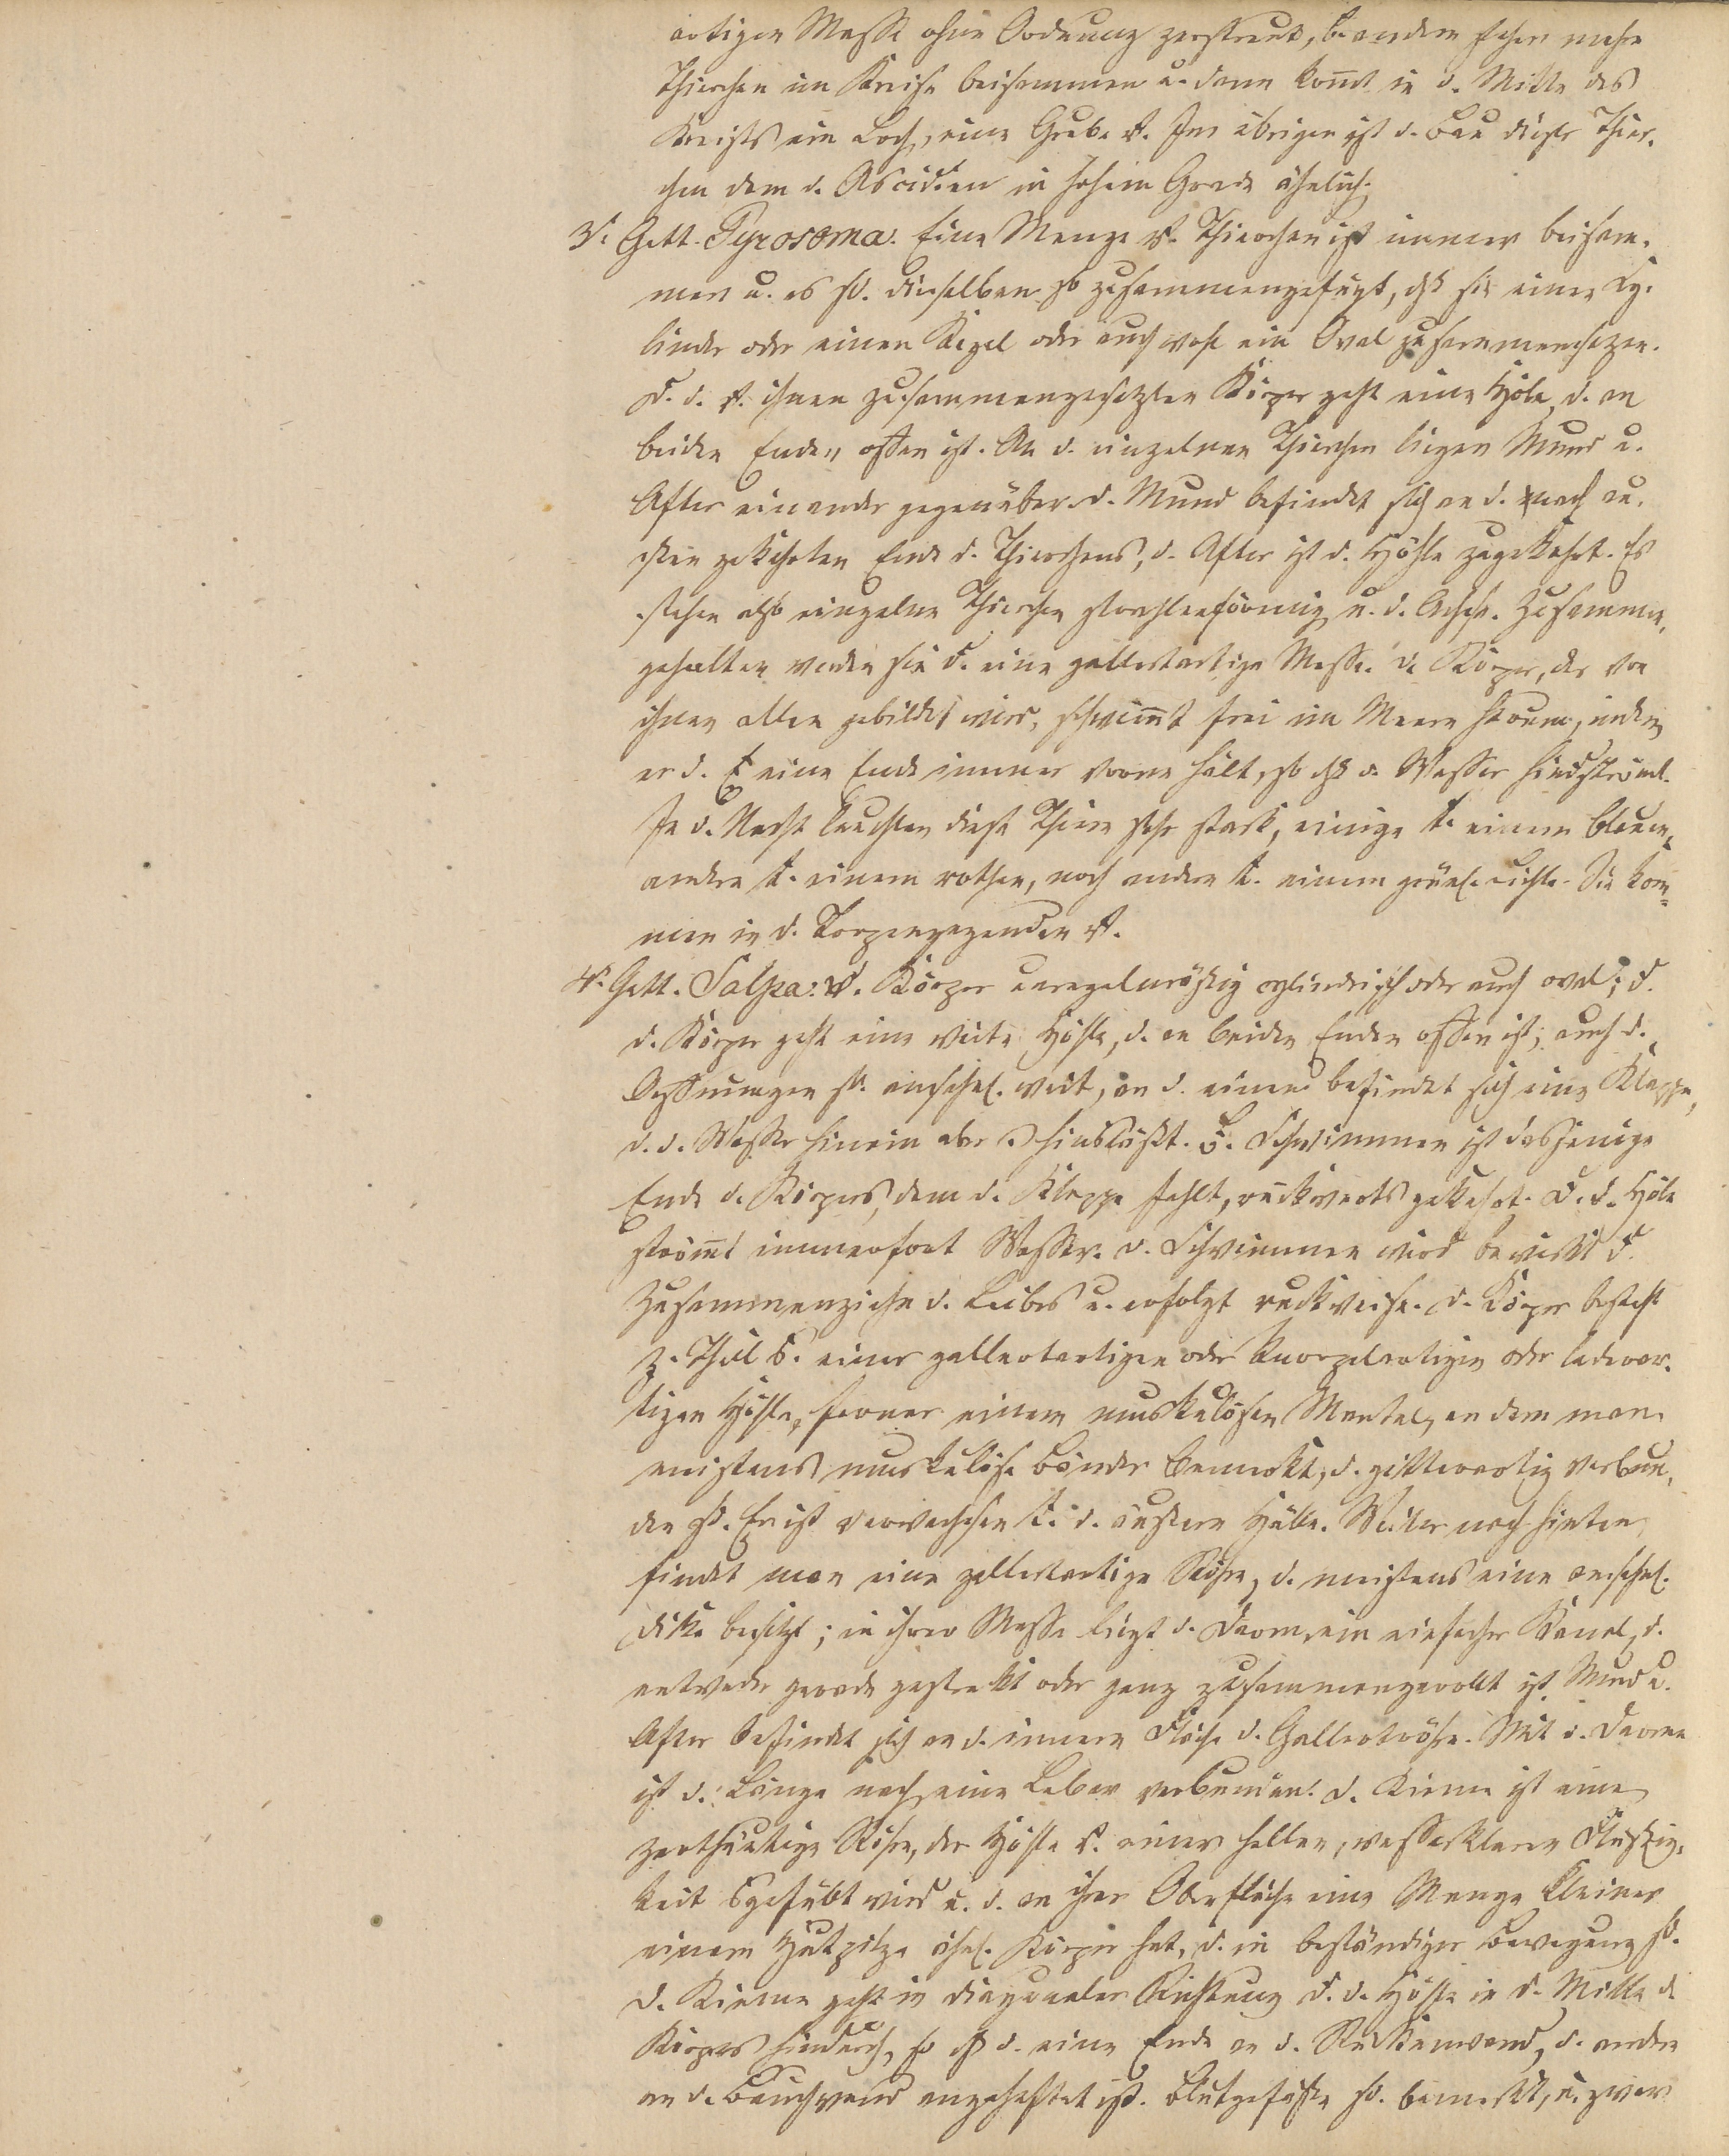 artigen Masse ohne Ordnung zerstreut, bei andern stehen mehre
Thierchen im Kreise beisammen u. dann kom̄t in d. Mitte des
Kreises ein Loch, eine Grube v. Im übrigen ist d. Bau dieser Thier-
chen dem d. Ascidien in hohem Grade ähnlich.
3. Gatt. Pyrosoma. Eine Menge v. Thierchen ist immer beisam-
men u. es sd. dieselben so zusammengefügt, dß sie einen Cy-
linder oder einen Kegel oder auch wohl ein Oval zusammensezen.
D. d. v. ihnen zusammengesetzten Körper geht eine Höle, d. an
beiden Enden offen ist. An d. einzelnen Thierchen liegen Mund u.
After einander gegenüber. D. Mund befindet sich an d. nach au-
ßen gekehrten Ende d. Thierchens, d. After ist d. Höhle zugekehrt. Es
stehen also einzelne Thierchen strahlenförmig u. d. Achse. Zusammen-
gehalten werden sie d. eine gallertartige Masse. D. Körper, der von
ihnen allen gebildet wird, schwim̄t frei im Meere herum, indem
er d. eine Ende immer vorne hält, so dß d. Wasser hindströmt.
In d. Nacht leuchten diese Thiere sehr stark, einige t. einem blauen,
andere t. einem rothen, noch andere t. einem grünl. Lichte. Sie kom-
men in d. Tropengegenden v.
4. Gatt. Salpa. D. Körper unregelmäßig cylindrisch oder auch oval; d.
d. Körper geht eine weite Höhle, d. an beiden Enden offen ist; auch d.
Oeffnungen sd. ansehnl. weit, an d. einen befindet sich eine Klappe,
d. d. Wasser hinein aber hinausläßt. B. Schwimmen ist dasjenige
Ende d. Körpers, dem d. Klappe fehlt, rückwerts gekehrt. D. d. Höle
ström̄t immerfort Wasser. D. Schwimmen wird bewirkt d.
Zusammenziehn d. Leibes u. erfolgt ruckweise. D. Körper besteht
z. Theil s. einer gallertartigen oder knorpelartigen oder lederar-
tigen Hülle, ferner einem muskulösen Mantel, an dem man
meistens muskulöse Bänder bemerkt, d. gitterartig verbun-
den sd. Er ist verwachsen t. d. äußern Hülle. Weiter nach hinten
findet man eine gallertartige Röhre, d. meistens eine ansehnl.
Dike besitzt; in ihrer Masse liegt d. Darm, ein einfacher Kanal, d.
entweder gerade gestrekt oder ganz zusammengerollt ist. Mund u.
After befindet sich an d. innern Fläche d. Gallertröhre. Mit d. Darme
ist d. Länge nach eine Leber verbunden. D. Kieme ist eine
zarthäutige Röhre, der Höhle v. einer hellen, wasserklaren Flüssig-
keit sgefüllt wird u. d. an ihrer Oberfläche eine Menge kleiner
einem Hutpilze ähnl. Körper hat, d. in beständiger Bewegung sd.
D. Kieme geht in diagonaler Richtung d. d. Höhle in d. Mitte d.
Körpers hindurch, so dß d. eine Ende an d. Rückenwand, d. andere
an d. Bauchwand angeheftet ist. Blutgefäße sd. bemerkt, u. zwar